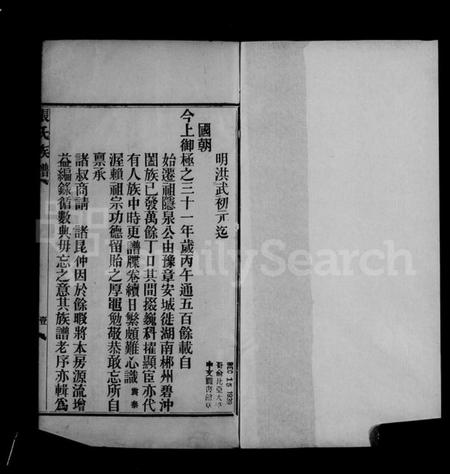 明洪武初元迄
國朝
今上御極之三十一年歲丙午通五百餘載自
始遷祖隱泉公由豫章安城徙湖南郴州碧沖
闔族已發萬餘丁口其間掇巍科擢顯宦亦代
有人族中時更譜牒卷續日繁頗難心識霽泰
渥賴祖宗功德留貽之厚黽勉敬恭敢忘所自
稟承
諸叔商請諸昆仲因於餘暇將本房源流增
益編錄循數典毋忘之意其族譜老序亦輯為
張氏族譜
壹
DEC 15 1939
哥倫比亞大學
中文圖書館
FamilySearch